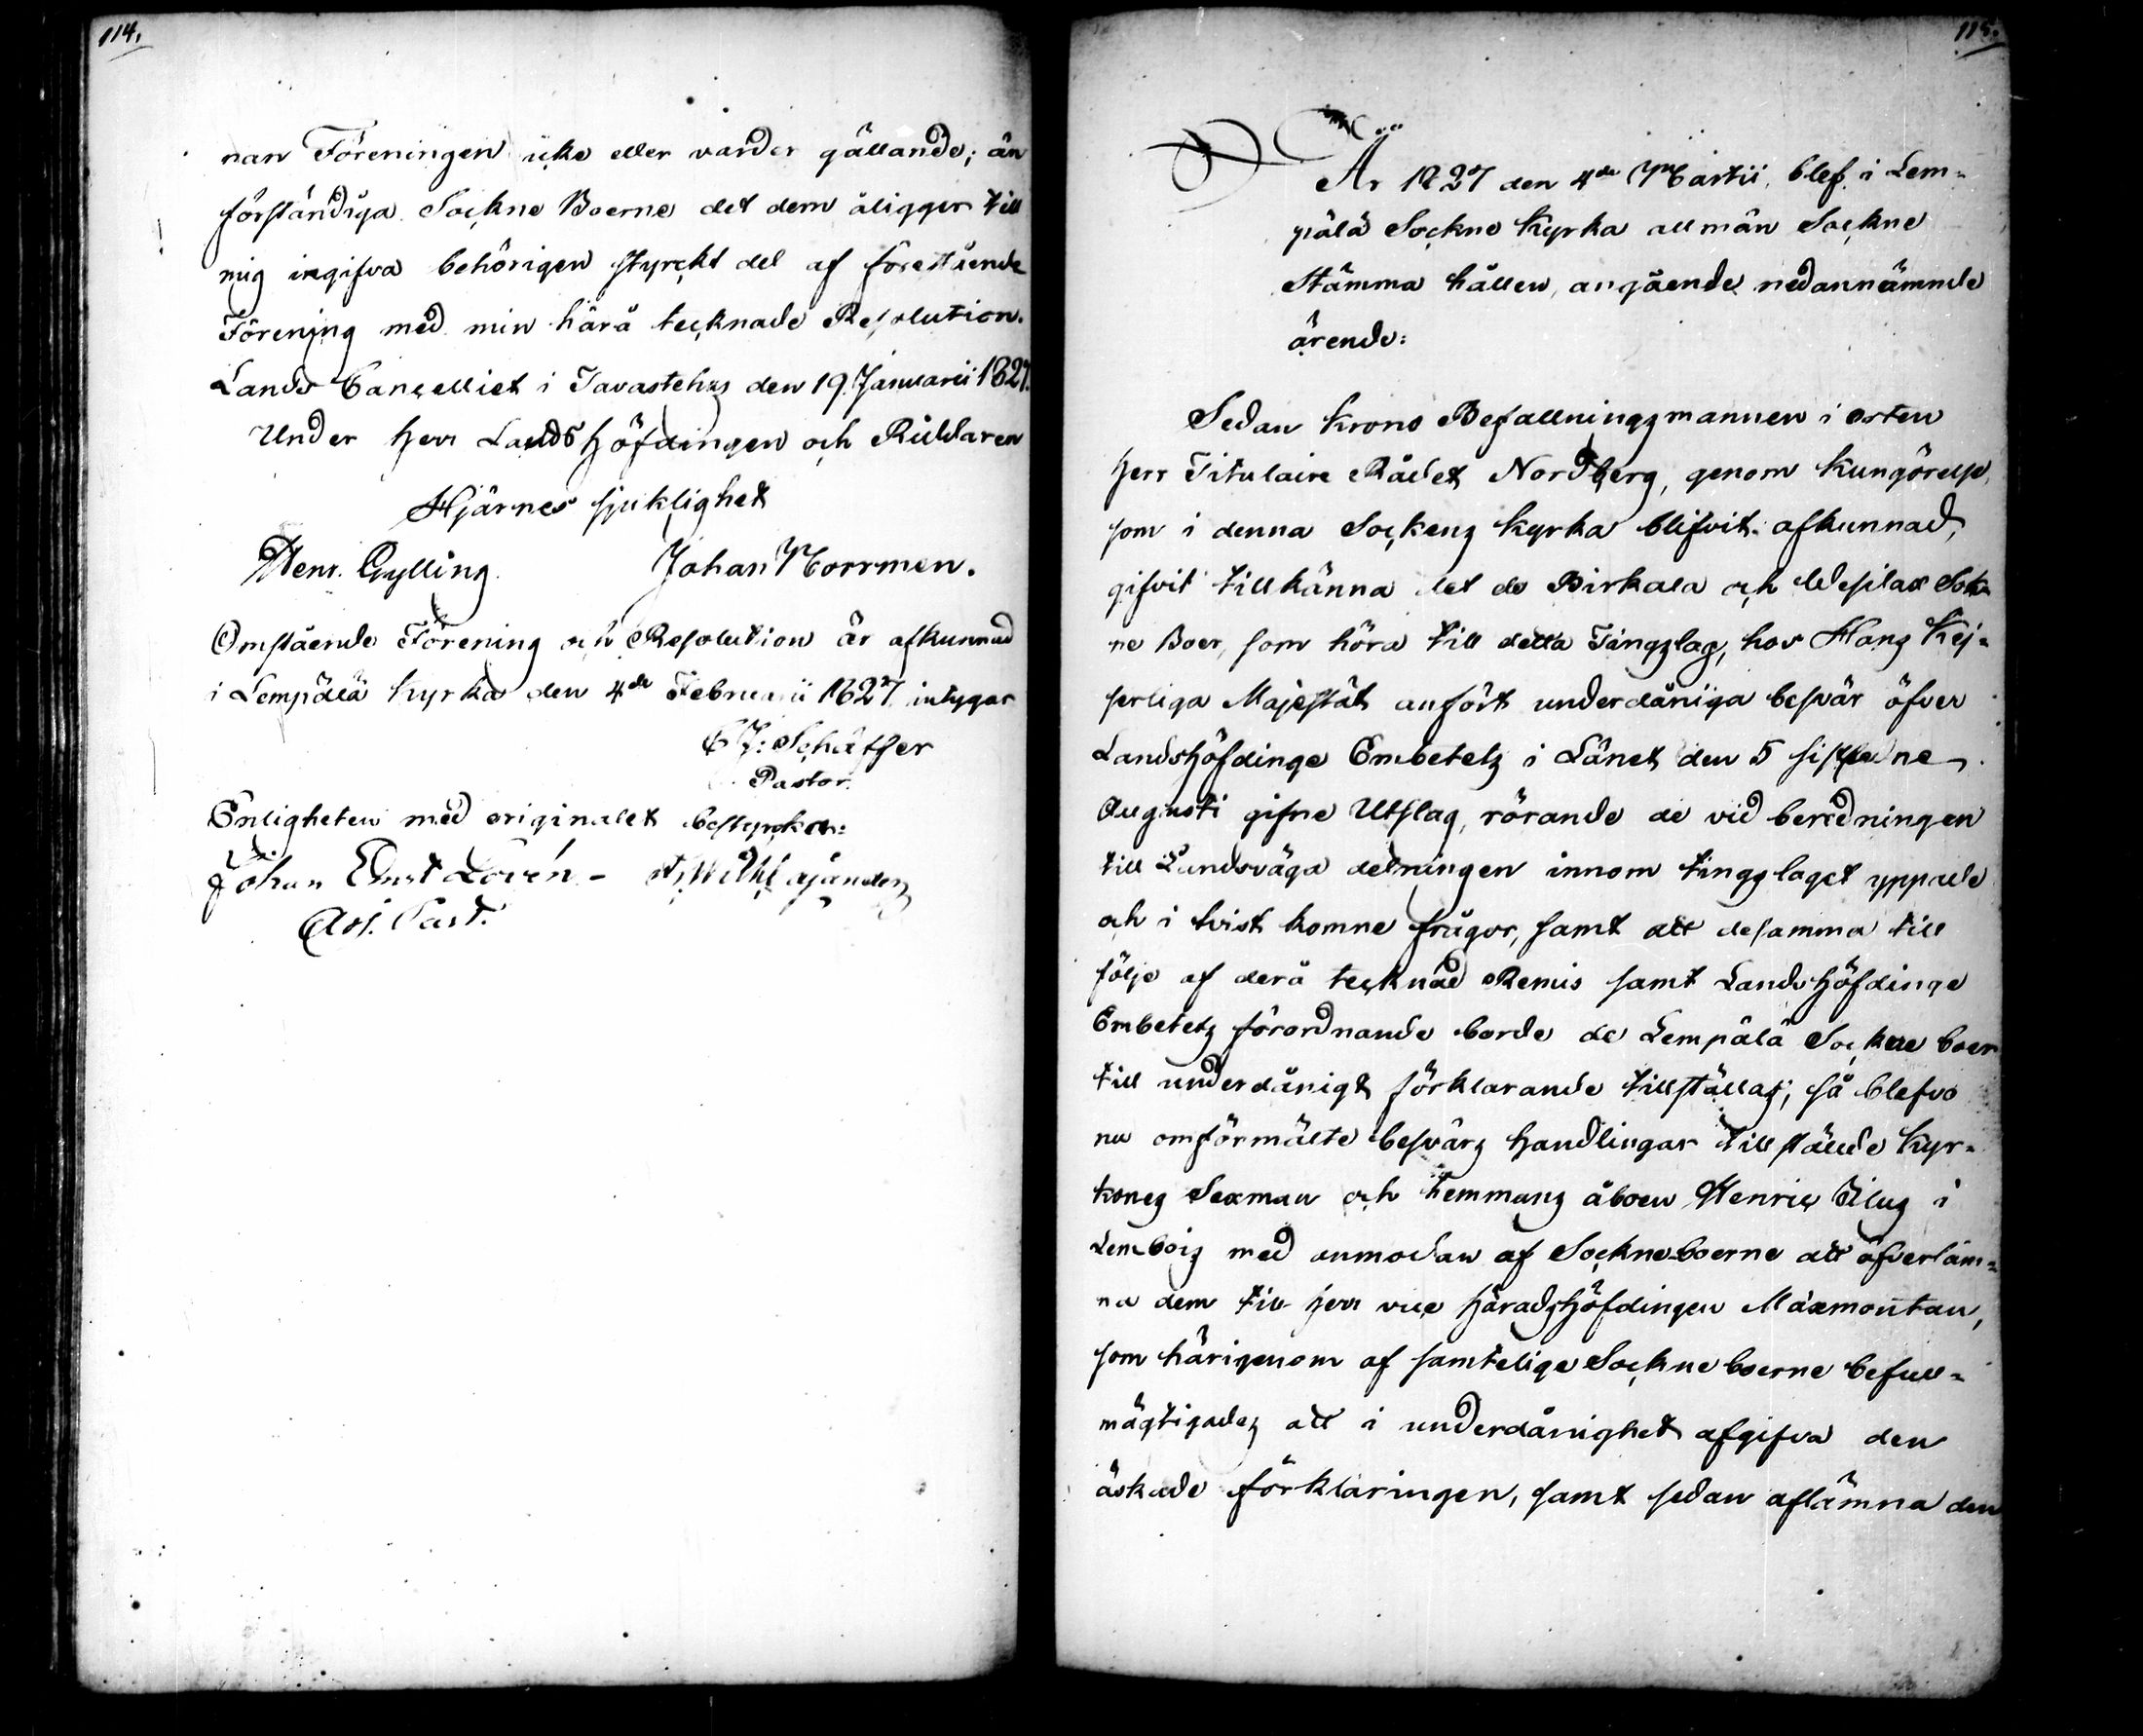 114.
nan Föreningen icke eller varder gällande; än
förständiga Sockne Boerne det dem åligger till
mig ingifva behörigen styrckt del af förestående
Förening med min härå tecknade Resolution.
Lands Cancelliet i Tavastehus den 19 Januarii 1827.
Under Herr Landshöfdingen och Riddaren
Hjärnes sjuklighet
Henr. Gylling. Johan Morrmen.
Omstående Förening och Resolution är afkunnad
i Lempälä kyrka den 4de Februarii 1827 intygar
C J: Schäffer
Pastor.
Enligheten med originalet bestyrka:
Johan Ernst Lovén -
Adj. Past.
115.
År 1827 den 4de Martii, blef i Lem-
pälä Sockne kyrka allmän Sockne
Stämma hållen, angående nedannämnde
ärende:
Sedan krono Befallningsmannen i orten
Herr Titulaire Rådet Nordberg, genom kungörelse,
som i denna Sockens kyrka blifvit afkunnad,
gifvit tillkänna det de Birkala och Wesilax Sok-
ne Boer, som höra till detta Tingslag, hos Hans Kej-
serliga Majestät anfört underdåniga besvär öfver
Landshöfdinge Embetets i Länet den 5 sistledne
Augusti gifne Utslag, rörande de vid beredningen
till Landsväga delningen innom tingslaget yppade
och i tvist komne frågor, samt att desamma till
följe af derå tecknad Remis samt Landshöfdinge
Embetets förordnande borde de Lempälä Sockne boer
till underdånigt förklarande tillställas; så blefvo
nu omförmälte besvärs handlingar tillstälde kyr-
kones Sexman och hemmans åboen Henric Klus i
Lembois med anmodan af Sockneboerne att öfverläm-
na dem till Herr vice Häradshöfdingen Maxmontan,
som härigenom af samtelige Sockne boerne befull-
mägtigades att i underdånighet afgifva den
äskade förklaringen, samt sedan aflämna den